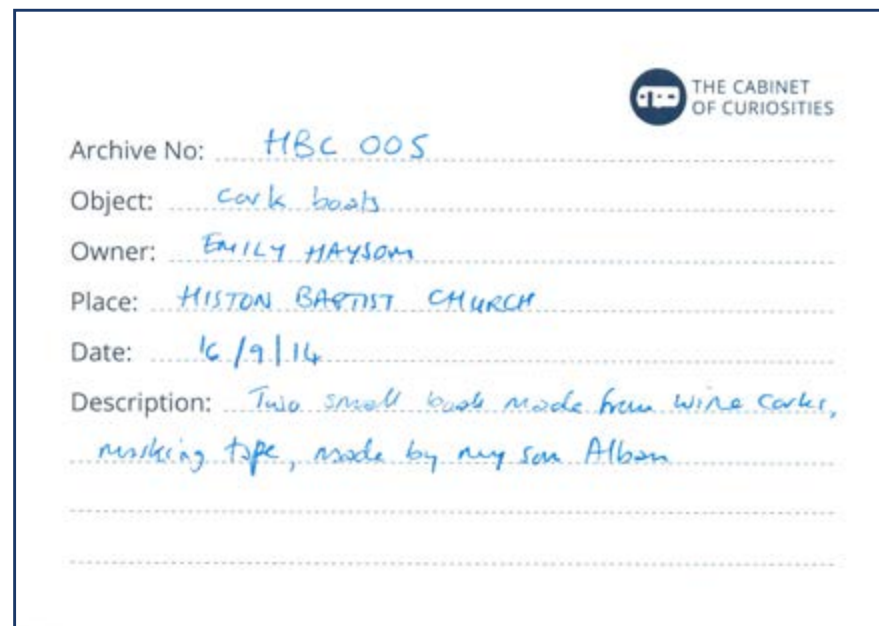 THE CABINET
OF CURIOSITIES
Archive No: HBC 005
Object: Cork boats
Owner: EMILY HAYSOM
Place: HISTON BAPTIST CHURCH
Date: 16/9/14
Description: Two small boats made from wine corks,
masking tape, made by my son Alban